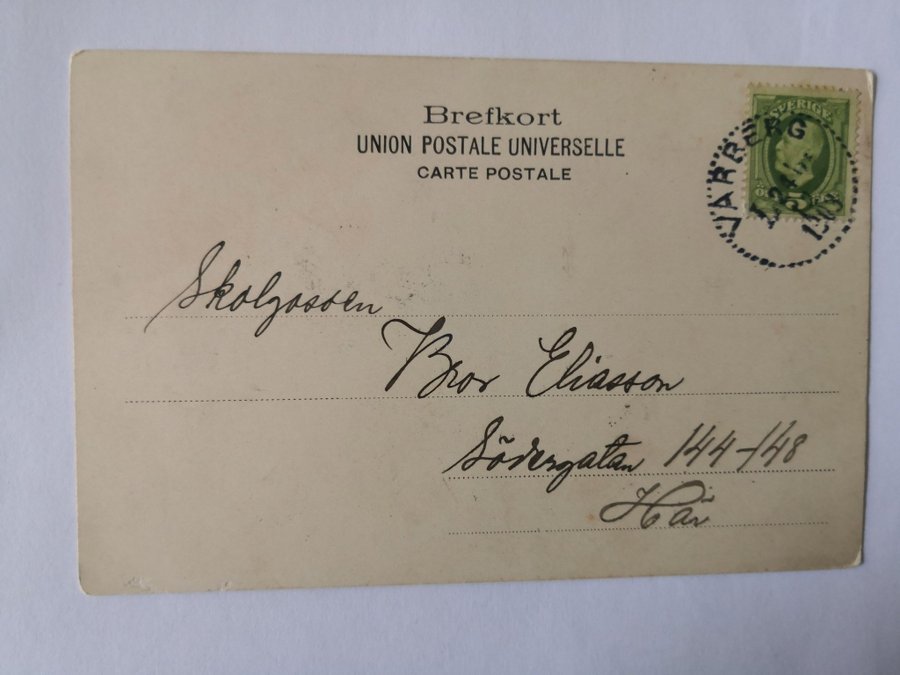 Brefkort
UNION POSTALE UNIVERSELLE
CARTE POSTALE
SVERIGE
5
VARBERG
24
1903
Skolgossen
Bror Eliasson
Södergatan 144-148
Här